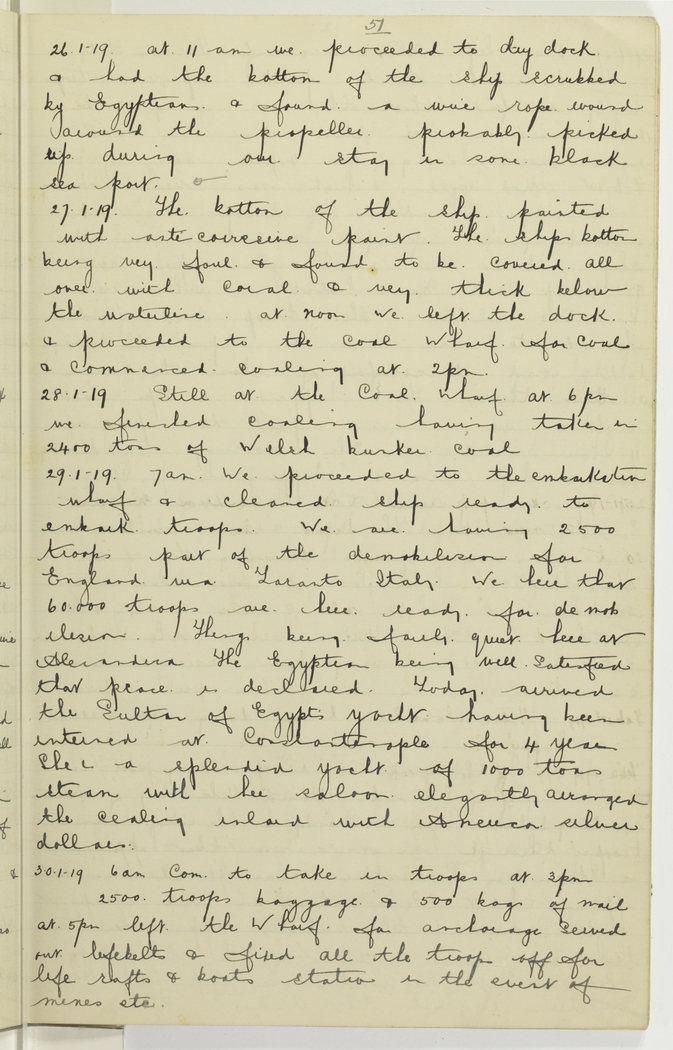 51
26.1-19. at 11 am we. proceeded to dry dock.
& had the bottom of the ship scrubbed
by Egyptians. & found. a wire rope wound
around the propeller. probably picked
up. during our stay in some black
sea port.
27.1-19. The. bottom of the ship. painted
with ante corresive paint. The. ships bottom
being very foul. & found. to be. covered. all
over. with coral & very. thick below
the waterline. at noon we left the dock.
& proceeded to the coal Wharf. for coal
& commenced. coaling at. 2pm.
28.1-19 Still at the Coal. wharf. at. 6 pm
we finished coaling having taken in
2400 tons of Welsh bunker coal
29.1-19. 7am. We. proceeded to the embarkation
wharf & cleared. ship ready. to
embark troops. We are. having 2500
troops part of the demobilision for
England. via. Taranto Italy. We hear that
60.000 troops are. here. ready. for. demob
ilision. Things being. fairly. quiet. here at
Alexandria The Egyptian being well. Satisfied
that peace. is declared. Today. arrived
the Sultan of Egypts yacht. having been
interned at. Constantinople for 4 years
She is a splendid yacht. of 1000 tons
steam with her saloon. elegantly arranged
the cealing inlaid with American silver
dollars.
30.1-19 6am Com. to take in troops at. 3pm
2500. troops baggage. & 500 bags of mail
at. 5pm left. the Wharf. for anchorage served
out. lifebelts & fixed all the troop off for
life rafts & boats station in the event of
mines etc.